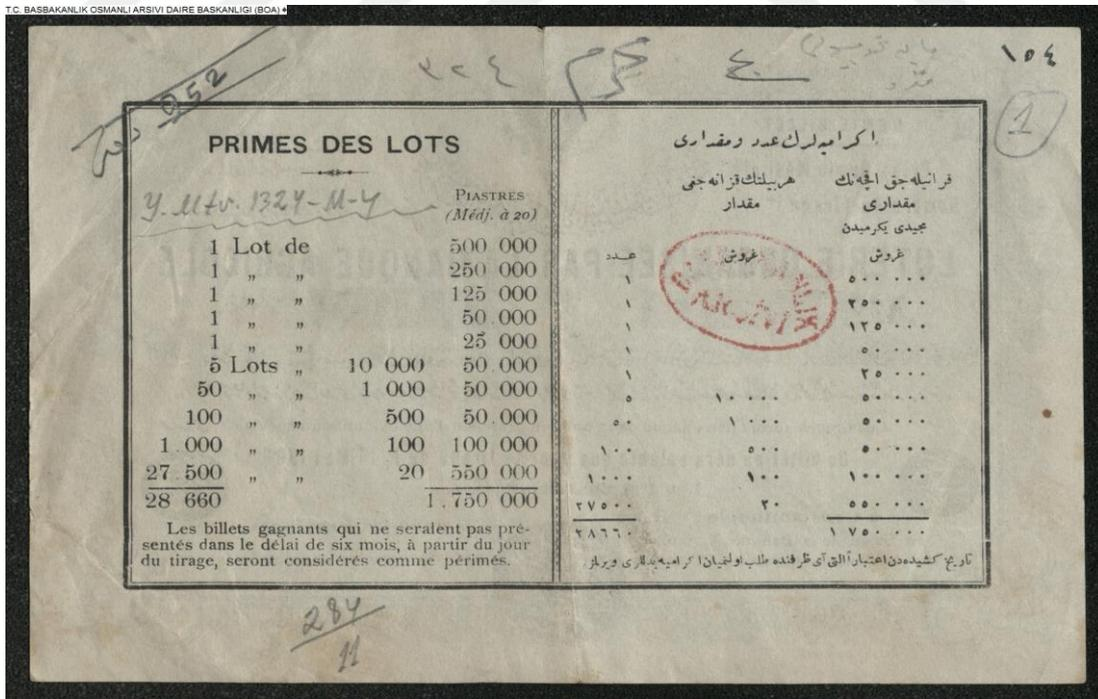 T.C. BASBAKANLIK OSMANLI ARSIVI DAIRE BASKANLIGI (BOA)
952
٣٢٤
١٥٤
1
PRIMES DES LOTS
Y. Mtv. 1324-M-4
PIASTRES
(Médj. à 20)
1 Lot de 500 000
1 „ „ 250 000
1 „ „ 125 000
1 „ „ 50.000
1 „ „ 25 000
5 Lots „ 10 000 50.000
50 „ „ 1 000 50 000
100 „ „ 500 50.000
1.000 „ „ 100 100 000
27 500 „ „ 20 550 000
28 660 1.750 000
Les billets gagnants qui ne seraient pas pré-
sentés dans le délai de six mois, à partir du jour
du tirage, seront considérés comme périmés.
اكراميه لرك عدد و مقدارى
قزانيله جق اقچه نك
مقدارى
مجيدى يكرميدن
غروش
هر بيلتك قزانه جغى
مقدار
غروش
عدد
١ ٥٠٠٠٠٠
١ ٢٥٠٠٠٠
١ ١٢٥٠٠٠
١ ٥٠٠٠٠
١ ٢٥٠٠٠
٥ ١٠٠٠٠ ٥٠٠٠٠
٥٠ ١٠٠٠ ٥٠٠٠٠
١٠٠ ٥٠٠ ٥٠٠٠٠
١٠٠٠ ١٠٠ ١٠٠٠٠٠
٢٧٥٠٠ ٢٠ ٥٥٠٠٠٠
٢٨٦٦٠ ١٧٥٠٠٠٠
تاريخ كشيده دن اعتباراً التى آى ظرفنده طلب اولنميان اكراميه بدللرى ويرلمز.
284
11